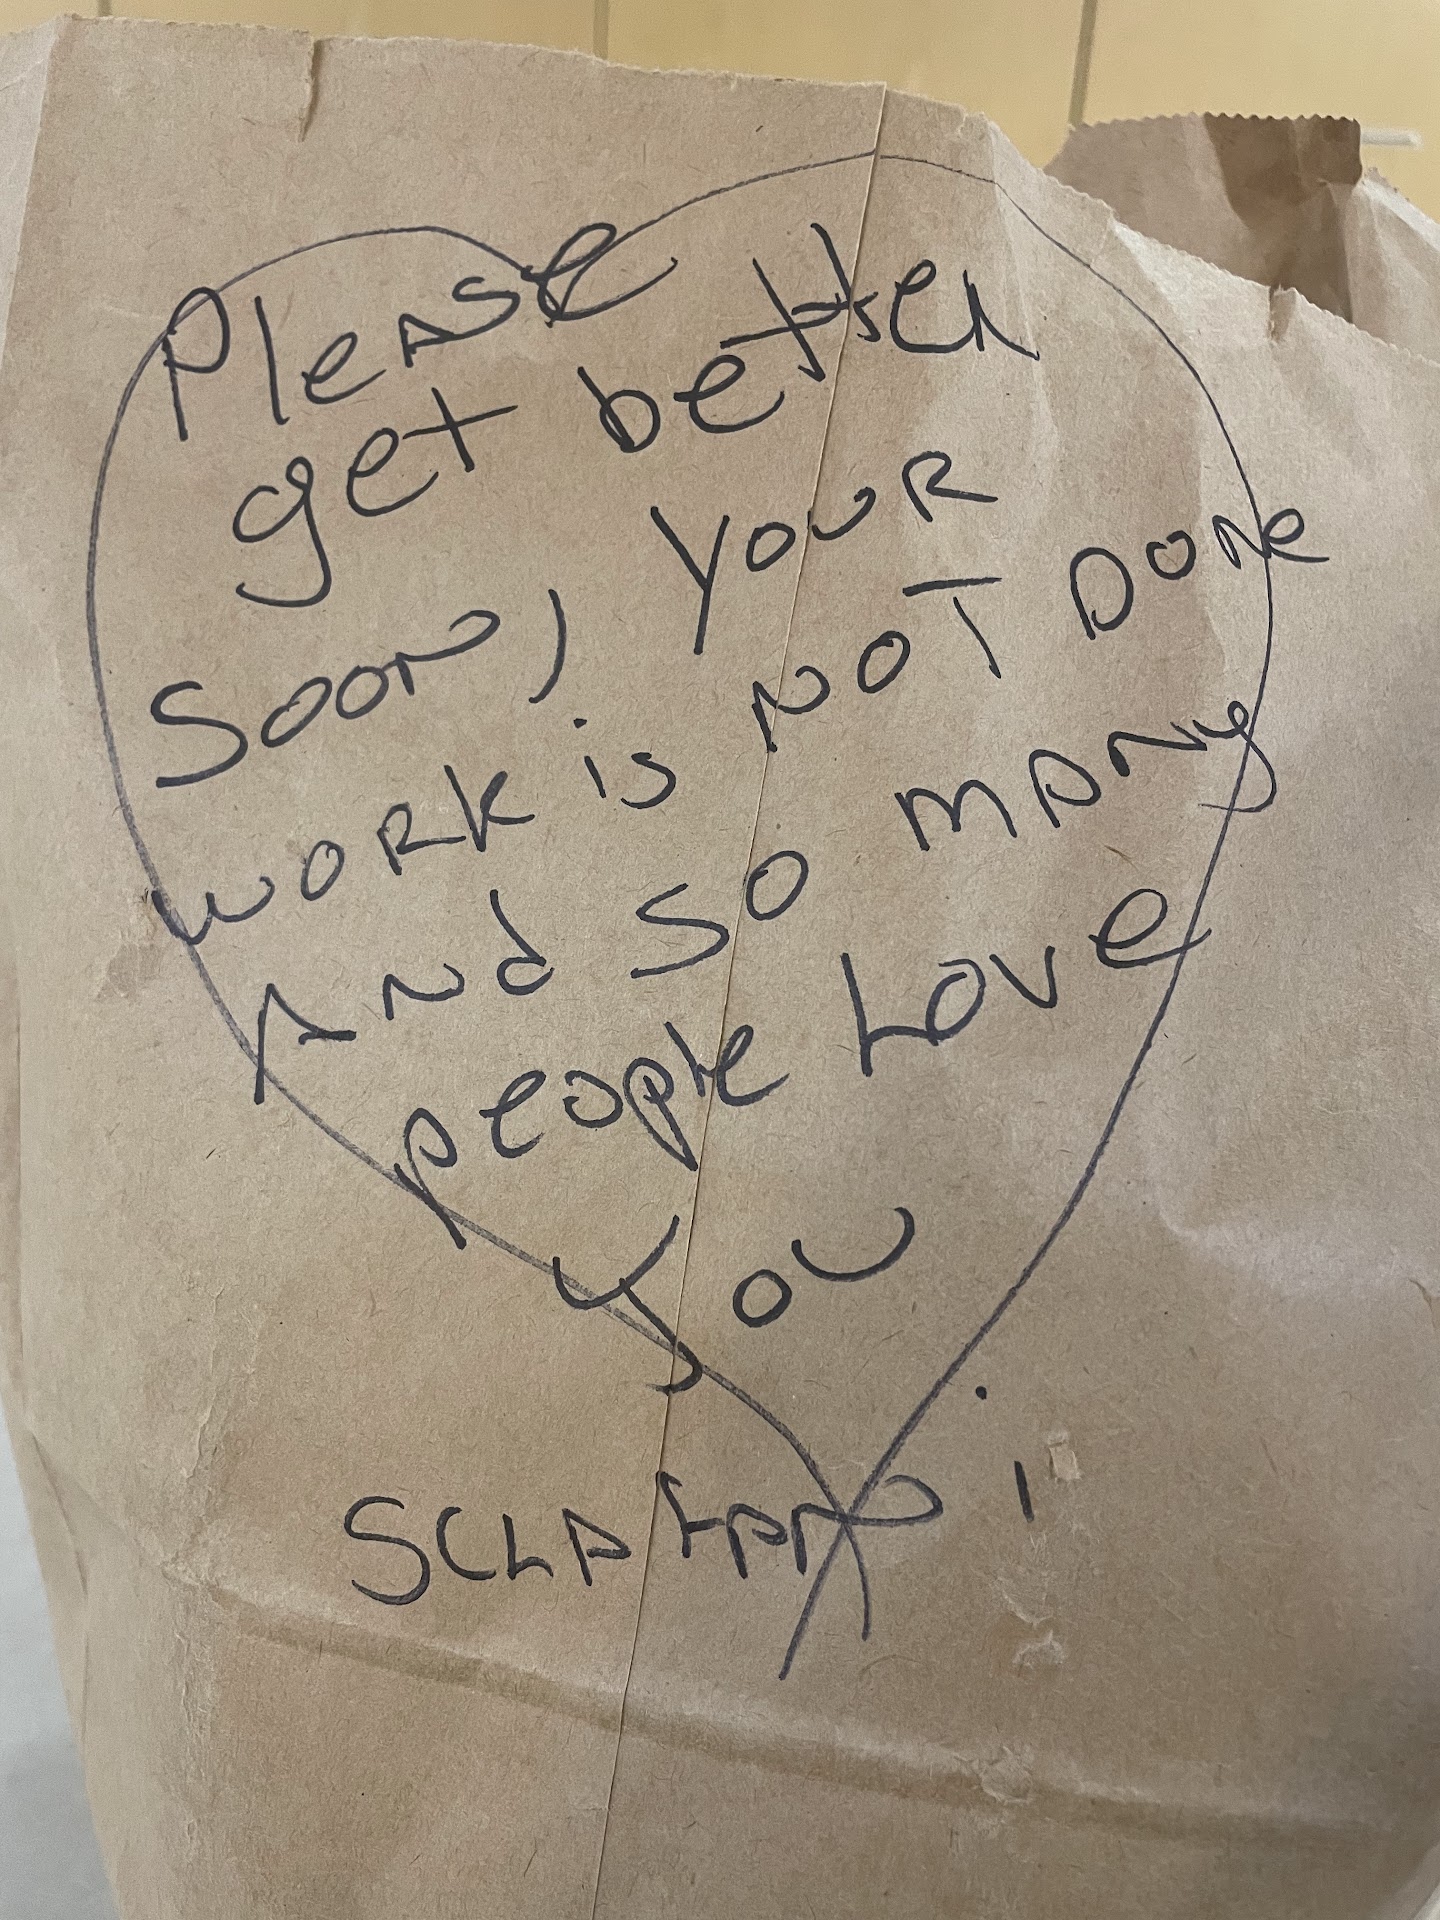 Please
get better
soon, your
work is NOT Done
And so many
people Love
you
SCLAFANi